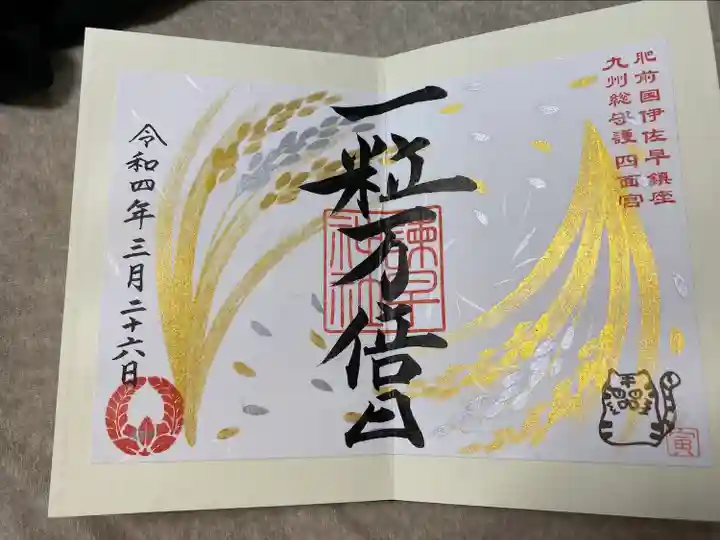 肥前国伊佐早鎮座
九州総守護 四面宮
一粒万倍日
諫早
神社
令和四年三月二十六日
寅